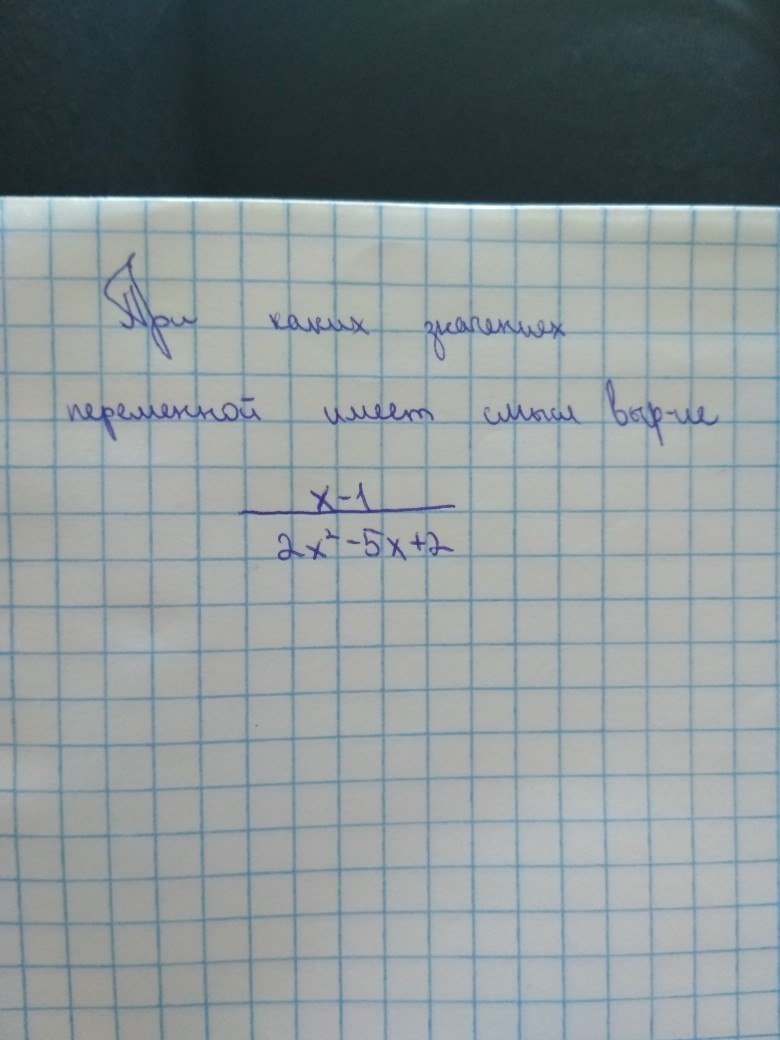 При каких значениях
переменной имеет смысл выр-ие
x-1
2x²-5x+2